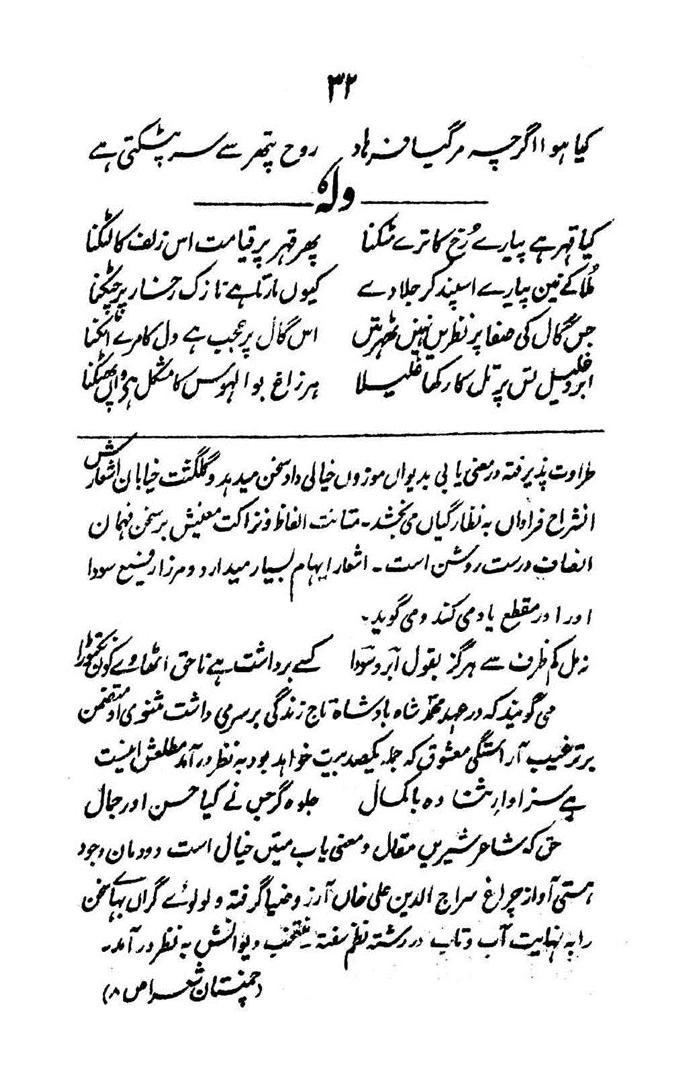 ۳۲
کیا ہوا اگرچہ مر گیا فرہاد روح پتھر سے سر پٹکتی ہے
ولہٗ
کیا قہر ہے پیارے رُخ کا ترے مٹکنا پھر قہر پر قیامت اس زلف کا لٹکنا
ملا کے نین پیارے اسپند کر جلا دے کیوں مارتا ہے نازک رخسار پر چٹکنا
جس گال کی صفا پر نظریں نہیں ٹھہرتیں اس گال پر عجب ہے دل کا مرے اٹکنا
ابرو خلیل تس پر تل کا رکھا غلیلا ہر زاغ بوالہوس کا مشکل ہے واں پھٹکنا
طراوت پذیرفتہ در معنی یابی بدیواں موزوں خیالی داد سخن میدہد و گلگشت خیابان اشعارش
انشراح فراواں بہ نظارگیاں می بخشد۔ متانت الفاظ و نزاکت معنیش بر سخن فہمان
انصاف درست روشن است۔ اشعار ایہام بسیار میدارد و مرزا رفیع سودا
اورا در مقطع یاد می کند و می گوید۔
نہ مل کم ظرف سے ہرگز بقول آبرو سودا کسے برداشت ہے ناحق اٹھاوے کون
می گویند کہ در عہد محمد شاہ بادشاہ تاج زندگی بر سر می داشت مثنوی او متضمن
بر ترغیب آراستگی معشوق کہ جملہ یکصد بیت خواہد بود بہ نظر در آمد مطلعش اینست
ہے سزاوار ثنا وہ باکمال جلوہ گر جس نے کیا حسن اور جمال
حق کہ شاعر شیریں مقال و معنی یاب متیں خیال است دودمان وجود
ہستی آواز چراغ سراج الدین علی خاں آرزو ضیا گرفتہ و لولوئے گراں بہائے سخن
را بہ نہایت آب و تاب در رشتہ نظم سفتہ۔ منتخب دیوانش بہ نظر در آمد۔
(چمنستان شعرا ص ۸)